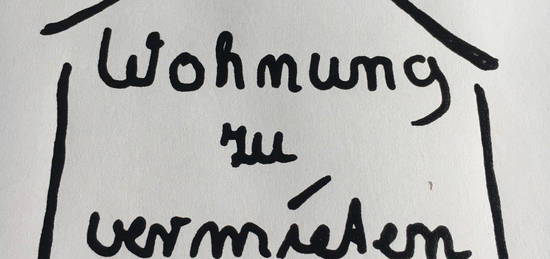 Wohnung
zu
vermieten